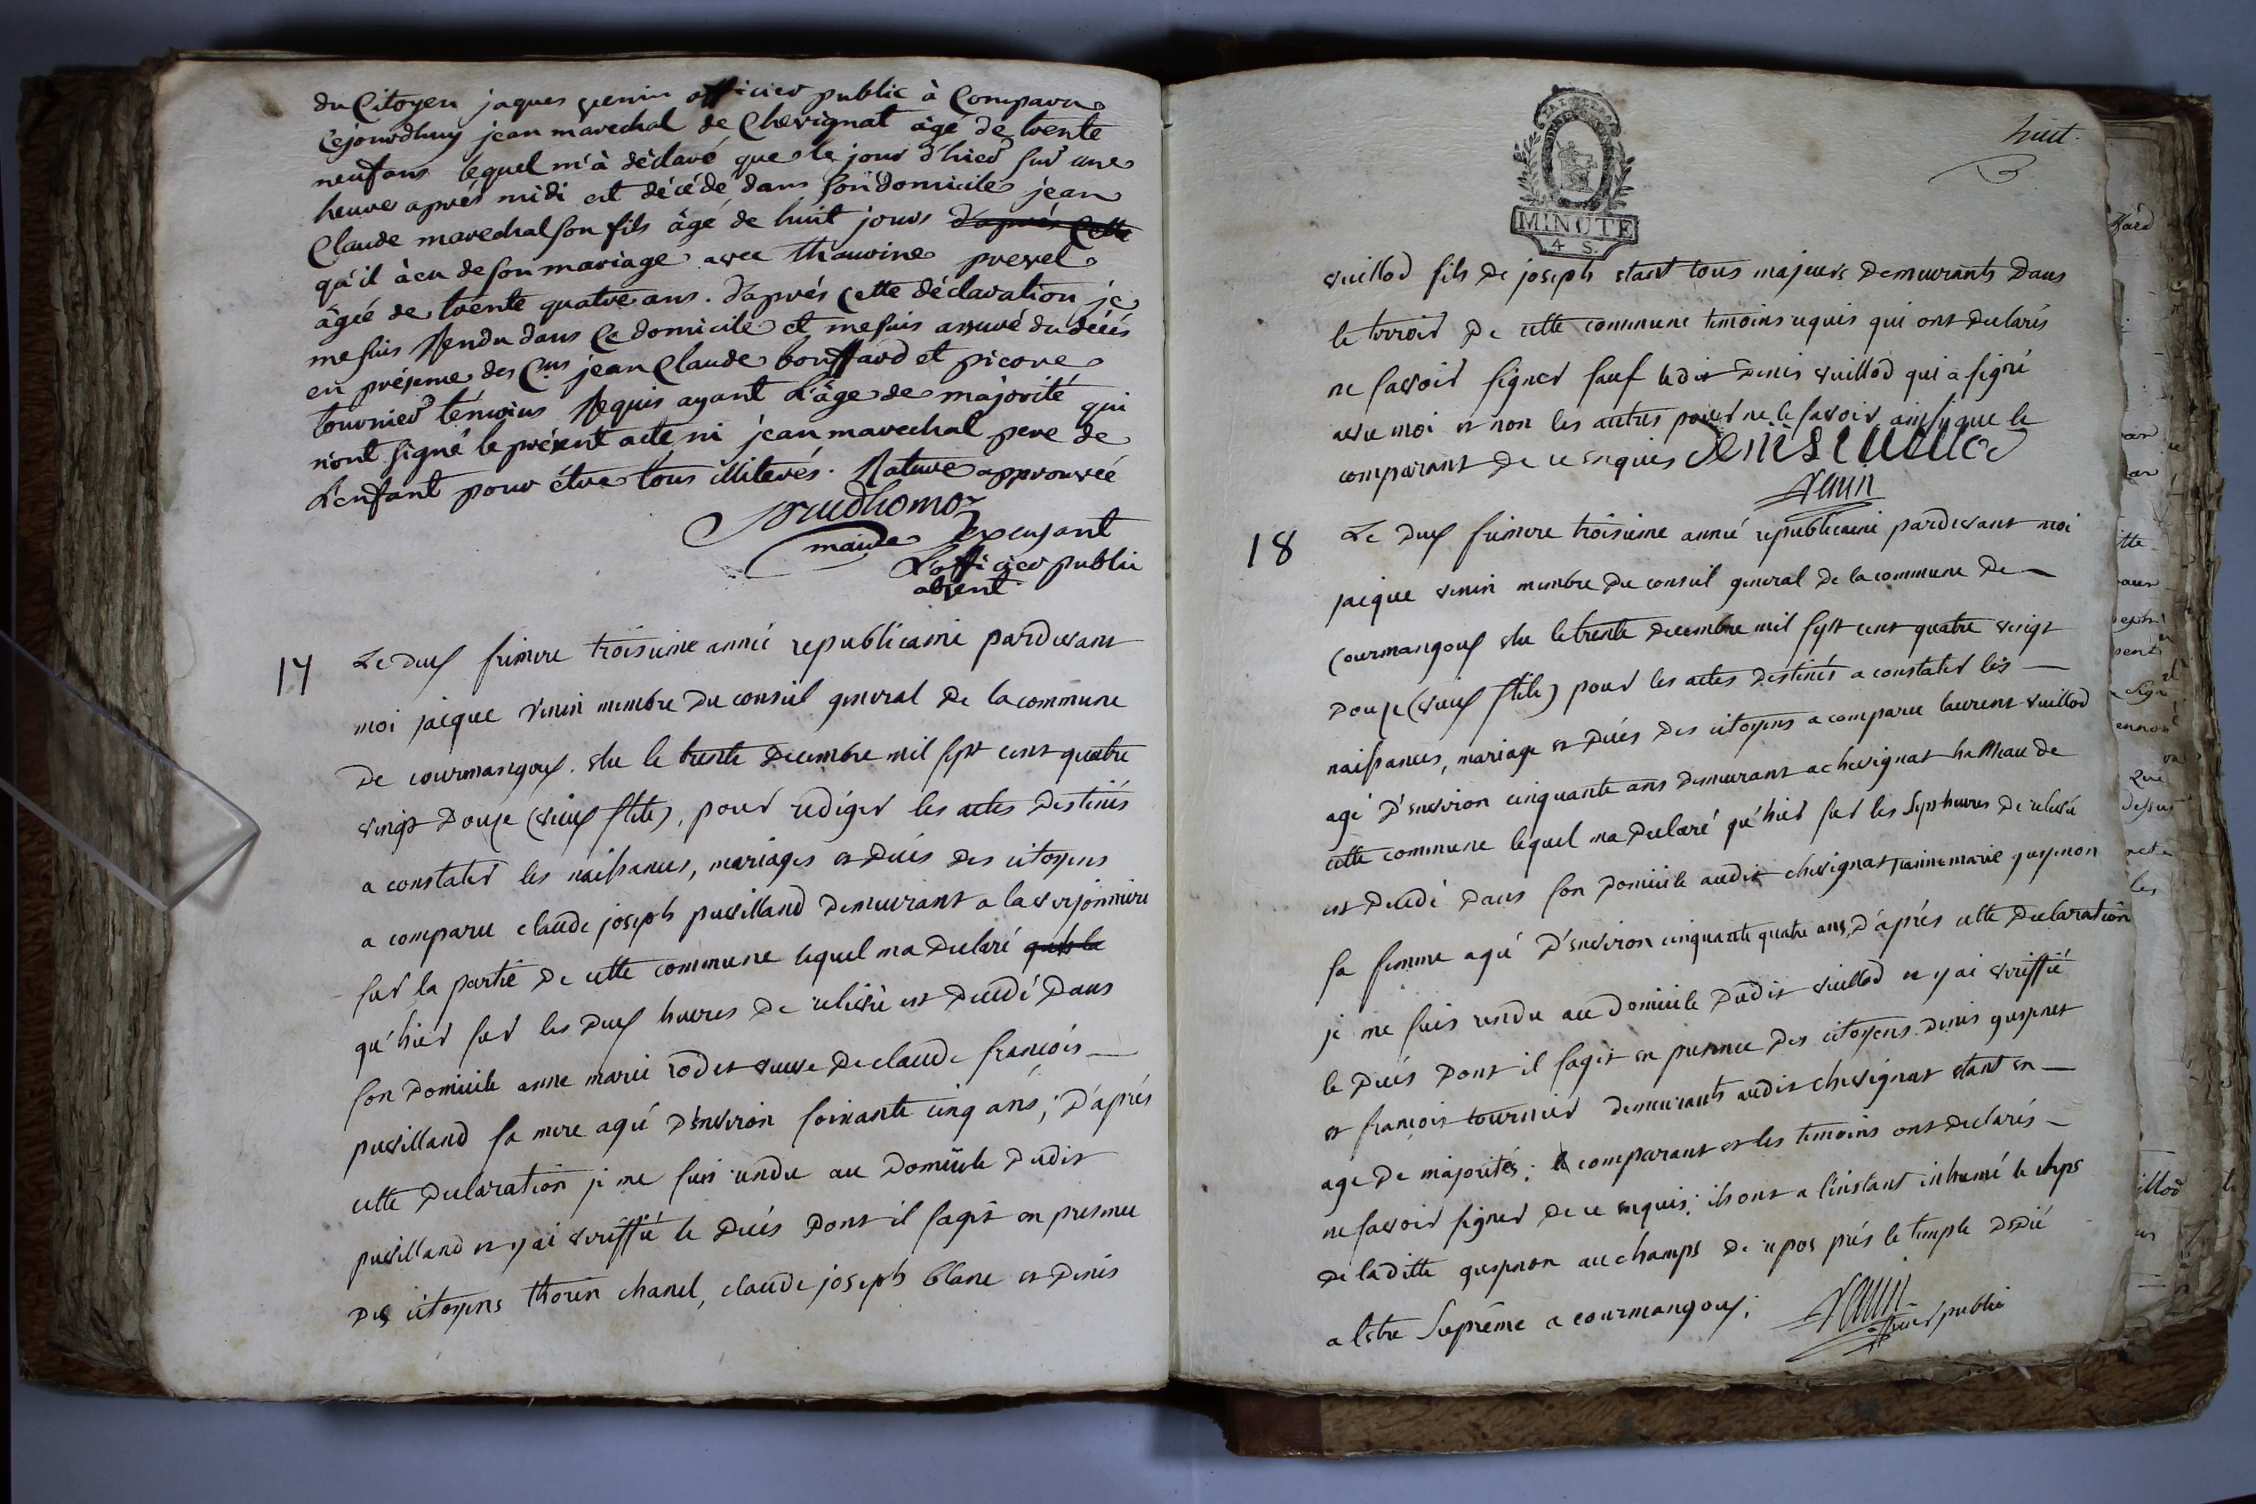 du Citoyen jaques venin officier public à Comparu
Cejourdhuy jean marechal de Chevignat âgé de trente
neuf ans lequel m'à déclaré que le jour d'hier sur une
heure aprés midi est décédé dans son domicile jean
Claude marechal son fils âgé de huit jours d'aprés Cette
qu'il à eu de son mariage avec Thaurine prevel
âgée de trente quatre ans. d'aprés Cette déclaration je
me suis Rendu dans Ce domicile et me suis assuré du décés
en présence des Cns jean Claude bouffard et picore
tournier témoins Requis ayant L'âge de majorité qui
n'ont signé le présent acte ni jean marechal pere de
L'enfant pour étre tous illiterés. Rature approuvée
prudhomo
maire Exerçant
L'officier public
absent
17 Le deux frimere troisieme année republicaine pardevant
moi jacque venin membre du conseil general de la commune
de courmangoux. elu le trente decembre mil sept cent quatre
vingt douze (vieux stile), pour rediger les actes destinés
a constater les naissances, mariages et décés des citoyens
a comparu claude joseph puvilland demeurant a la verjonniere
sur la partie de cette commune lequel ma declaré
qu'hier sur les deux heures de relevée est decedé dans
son domicile anne marie rodet veuve de claude françois
puvilland sa mere agée d'environ soixante cinq ans; d'aprés
cette declaration je me suis rendu au domicile dudit
puvilland et y ai veriffié le décés dont il sagit en presence
des citoyens thorin chanel, claude joseph blanc et denis
huit.
MINUTE
4 S.
vuillod fils de joseph etant tous majeurs demeurants dans
le terroir de cette commune temoins requis qui ont declarés
ne savoir signer sauf ledit denis vuillod qui a signé
avec moi et non les autres pour ne le savoir ainsi que le
comparant de ce enquis denis vuillod
venin
18 Le deux frimere troisieme année republicaine pardevant moi
jacque venin membre du conseil general de la commune de
courmangoux elu le trente decembre mil sept cent quatre vingt
douze (vieux stile) pour les actes destinés a constater les
naissances, mariage et décés des citoyens a comparu laurent vuillod
agé d'environ cinquante ans demeurant a chevignat hameau de
cette commune lequel ma declaré qu'hier sur les sept heures de relevée
est decedé dans son domicile audit chevignat jeanne marie guynon
sa femme agée d'environ cinquante quatre ans, d'aprés cette declaration
je me suis rendu au domicile dudit vuillod et y ai veriffié
le décés dont il sagit en presence des citoyens denis
et françois tournier demeurants audit chevignat etant en
age de majorités; le comparant et les temoins ont declarés
ne savoir signer de ce enquis; ils ont a l'instant inhumé le corps
de la ditte au champs de repos prés le temple dedié
a lêtre Suprême a courmangoux;
venin
officier public